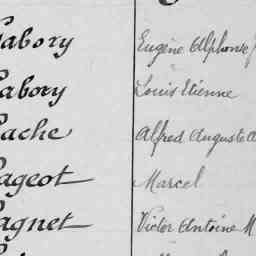 abory Eugène Alphonse
abory Louis Etienne
ache Alfred Auguste
ageot Marcel
agnet Victor Antoine M